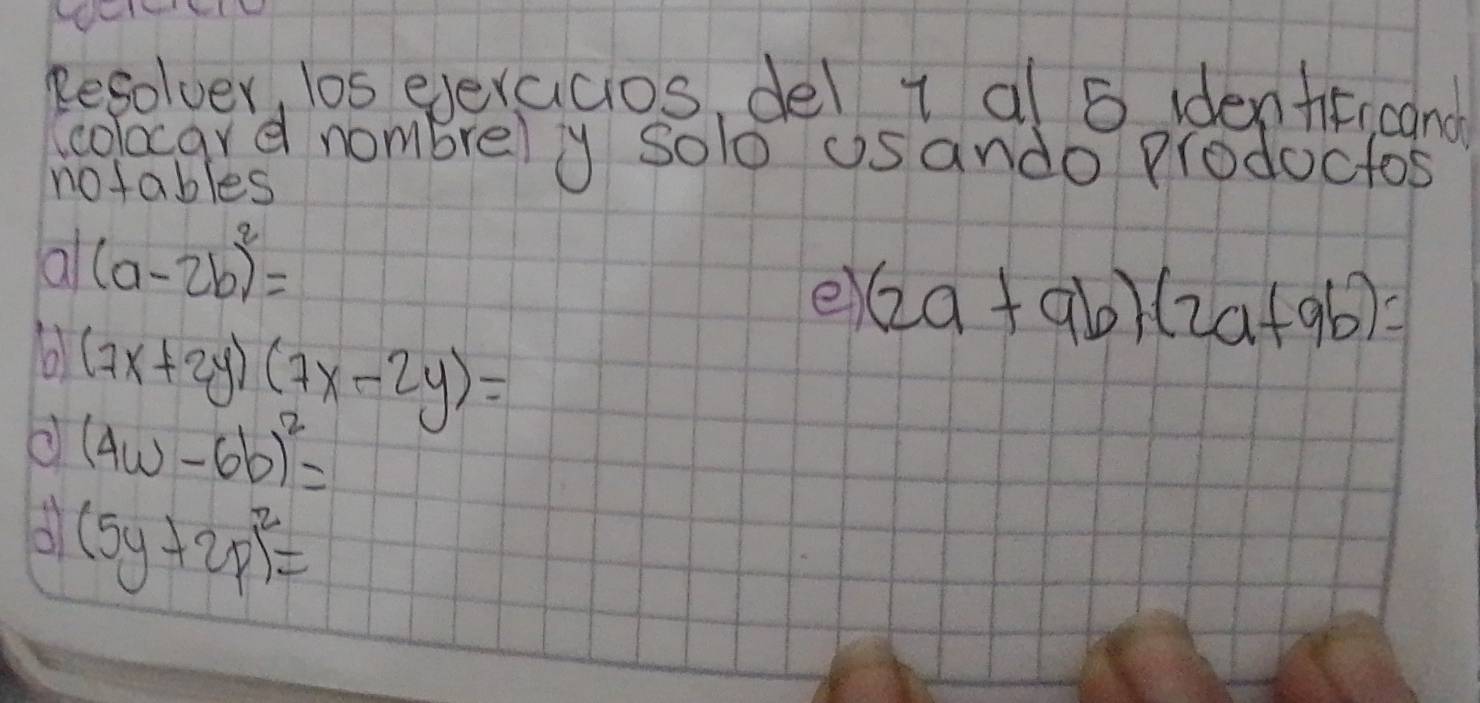 Resolver, los ejercicios del 1 al 5 identificando
(colocar el nombre) y solo usando productos
notables
a) (a-2b)²=
b) (7x+2y)(7x-2y)=
c) (4w-6b)²=
d) (5y+2p)²=
e) (2a+9b)·(2a+9b)=